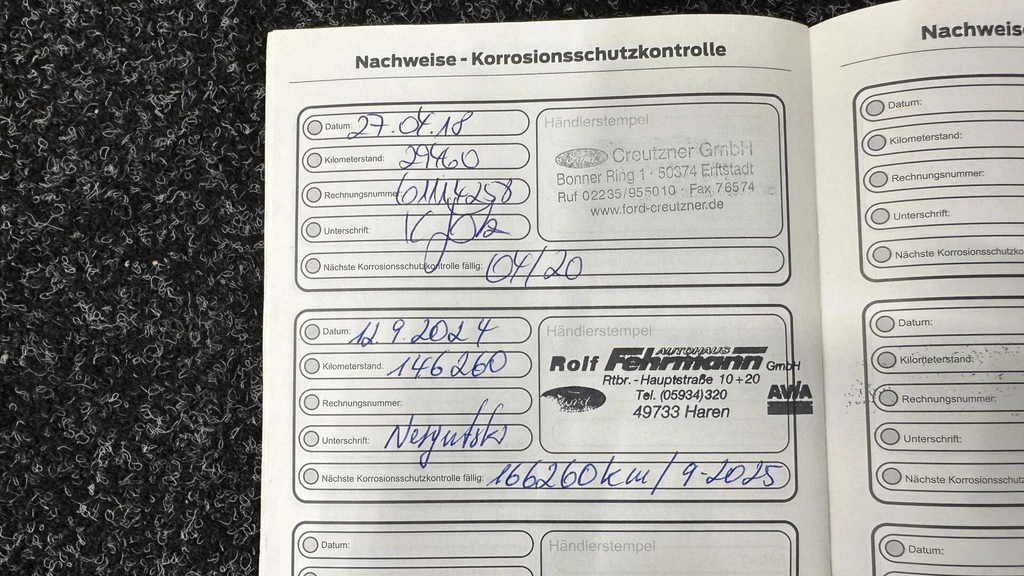 Nachweise - Korrosionsschutzkontrolle
Datum: 27.04.18
Kilometerstand: 29460
Rechnungsnummer:
Unterschrift:
Nächste Korrosionsschutzkontrolle fällig: 04/20
Händlerstempel
Creutzner GmbH
Bonner Ring 1 · 50374 Erftstadt
Ruf 02235/955010 · Fax. 76574
www.ford-creutzner.de
Datum: 12.9.2024
Kilometerstand: 146260
Rechnungsnummer:
Unterschrift:
Nächste Korrosionsschutzkontrolle fällig: 166260km/9-2025
Händlerstempel
AUTOHAUS
Rolf Fehrmann GmbH
Rtbr.-Hauptstraße 10+20
Tel. (05934) 320
49733 Haren
AVIA
Datum:
Händlerstempel
Nachweis
Datum:
Kilometerstand:
Rechnungsnummer:
Unterschrift:
Nächste Korrosionsschutzko
Datum:
Kilometerstand:
Rechnungsnummer:
Unterschrift:
Nächste Korrosionsschutz
Datum: